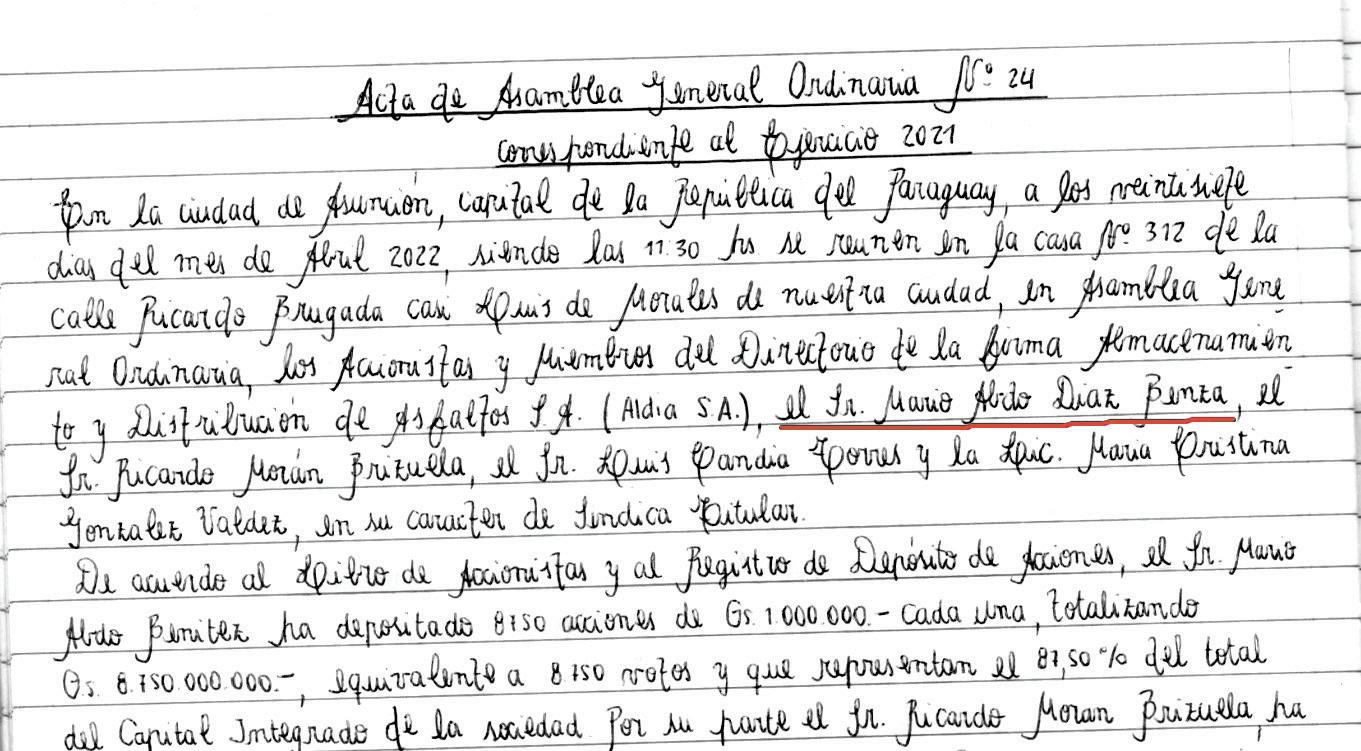 Acta de Asamblea General Ordinaria Nº 24
correspondiente al Ejercicio 2021
En la ciudad de Asunción, capital de la República del Paraguay, a los veintisiete
dias del mes de Abril 2022, siendo las 11:30 hs se reunen en la casa Nº 312 de la
calle Ricardo Brugada casi Luis de Morales de nuestra ciudad, en Asamblea Gene
ral Ordinaria, los Accionistas y Miembros del Directorio de la firma Almacenamien
to y Distribución de Asfaltos S.A. (Aldia S.A.), el Sr. Mario Abdo Diaz Benza, el
Sr. Ricardo Morán Brizuela, el Sr. Luis Candia Torres y la Lic. Maria Cristina
Gonzalez Valdez, en su caracter de Sindica Titular.
De acuerdo al Libro de Accionistas y al Registro de Depósito de Acciones, el Sr. Mario
Abdo Benitez ha depositado 8750 acciones de Gs. 1.000.000.- cada una, totalizando
Gs. 8.750.000.000.-, equivalente a 8.750 votos y que representan el 87,50% del total
del Capital Integrado de la sociedad. Por su parte el Sr. Ricardo Moran Brizuela, ha